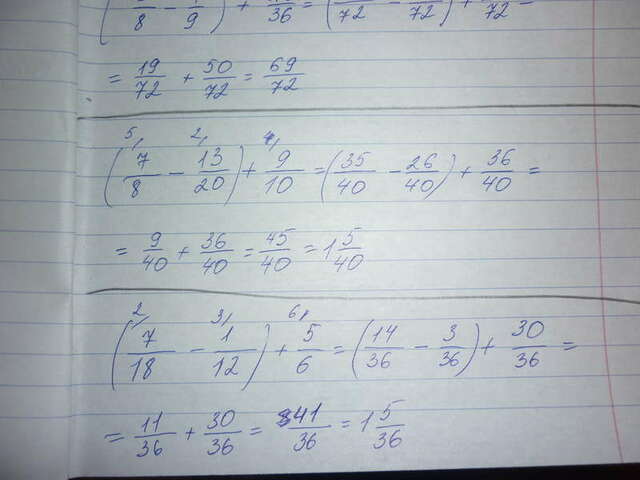 8 − 9 ) + 36 = ( 72 − 72 ) + 72 =
= 19/72 + 50/72 = 69/72
5, 2, 4,
( 7/8 − 13/20 ) + 9/10 = ( 35/40 − 26/40 ) + 36/40 =
= 9/40 + 36/40 = 45/40 = 1 5/40
2, 3, 6,
( 7/18 − 1/12 ) + 5/6 = ( 14/36 − 3/36 ) + 30/36 =
= 11/36 + 30/36 = 41/36 = 1 5/36